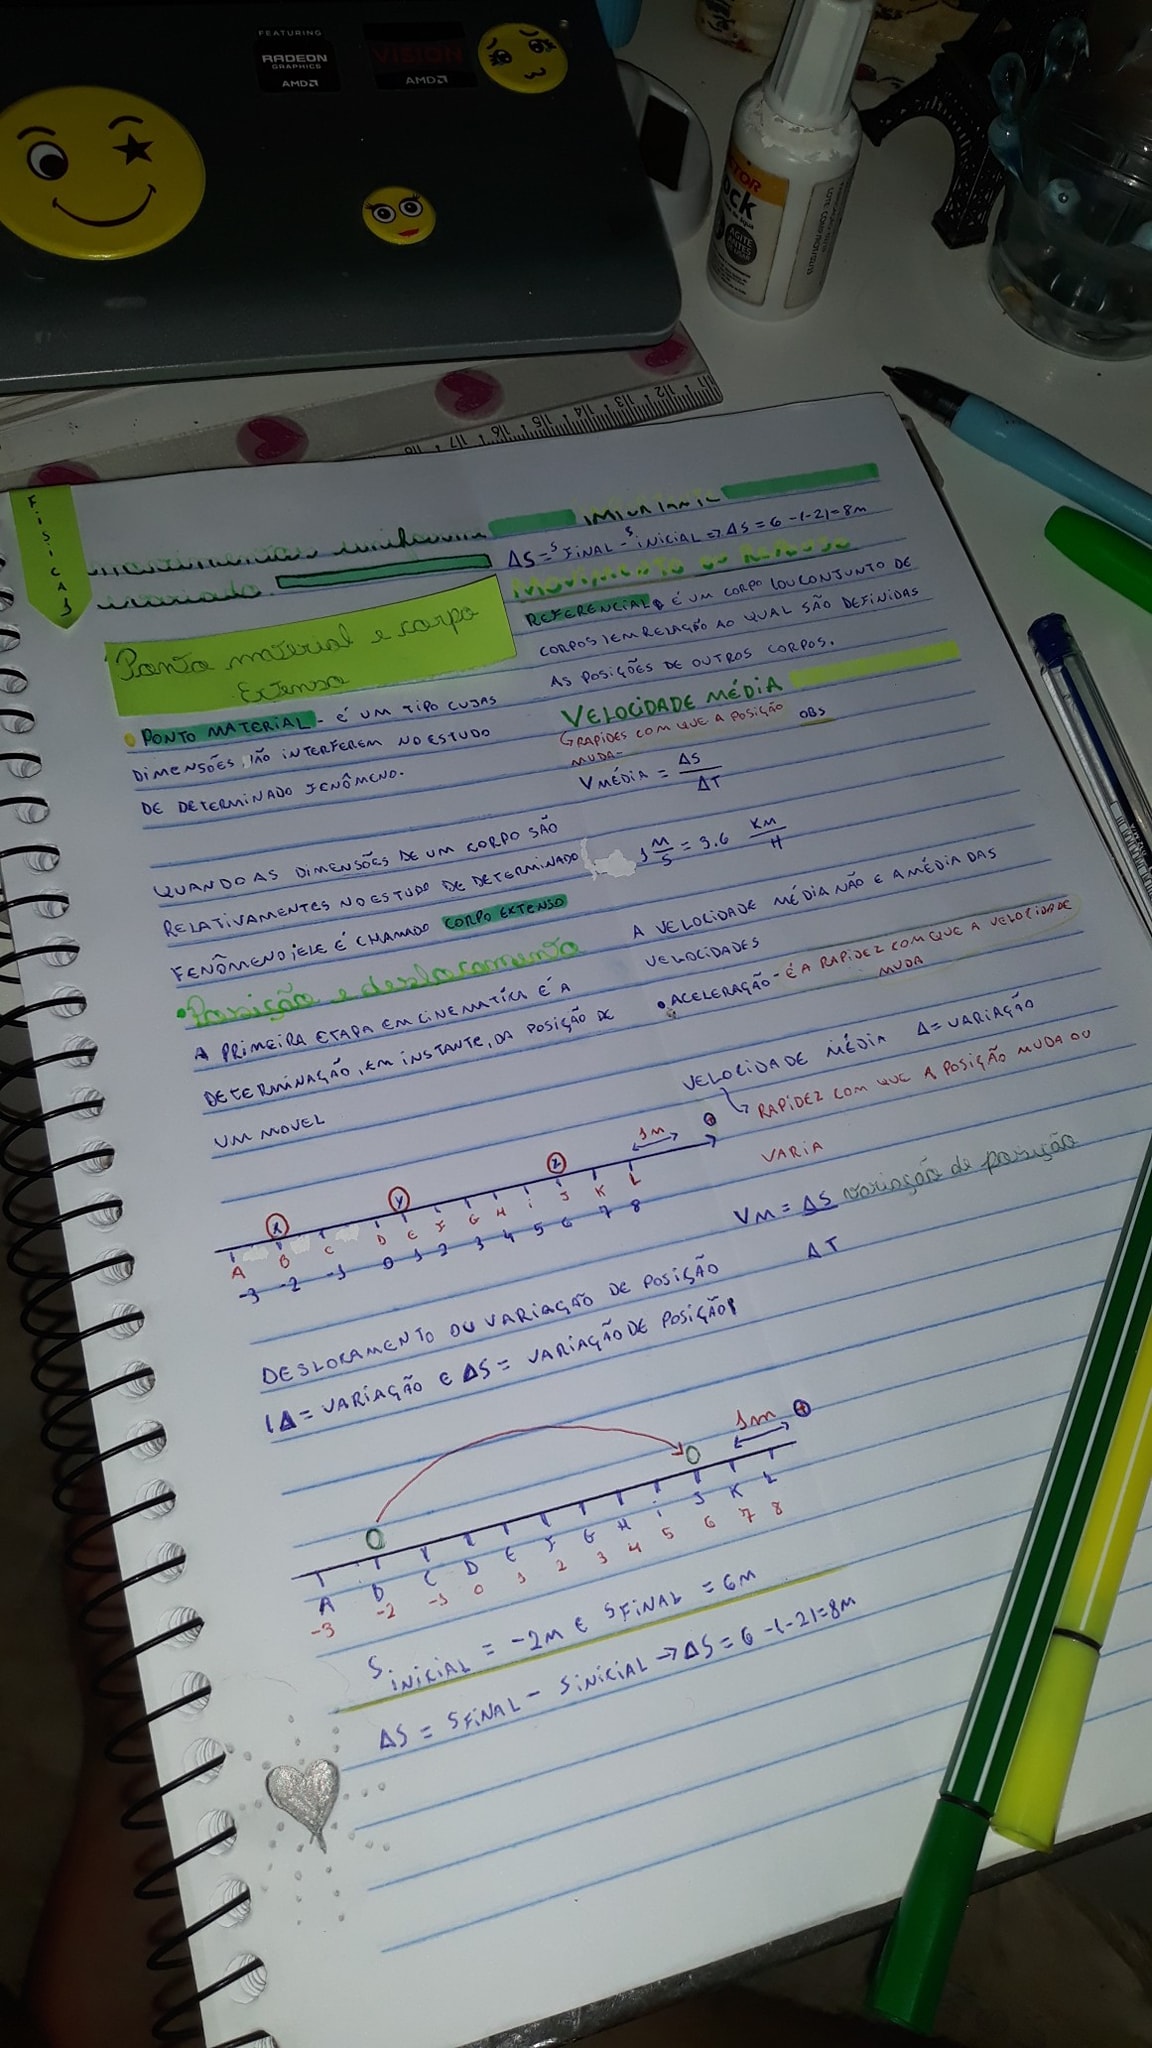 FEATURING
RADEON
GRAPHICS
AMD
VISION
AMD
AGITE
ANTES
11 12 13 14 15 16 17 18
FÍSICA
variado.
Ponto material e corpo
Extenso
• PONTO MATERIAL - É UM TIPO CUJAS
DIMENSÕES NÃO INTERFEREM NO ESTUDO
DE DETERMINADO FENÔMENO.
QUANDO AS DIMENSÕES DE UM CORPO SÃO
RELATIVAMENTES NO ESTUDO DE DETERMINADO
FENÔMENO, ELE É CHAMADO CORPO EXTENSO
• Posição e deslocamento
A PRIMEIRA ETAPA EM CINEMATÍCA É A
DETERMINAÇÃO, EM INSTANTE, DA POSIÇÃO DE
UM MOVEL
X Y Z 1m +
A B C D E F G H i J K L
-3 -2 -1 0 1 2 3 4 5 6 7 8
DESLOCAMENTO OU VARIAÇÃO DE POSIÇÃO
(Δ = VARIAÇÃO E ΔS = VARIAÇÃO DE POSIÇÃO)
1m +
A B C D E F G H i J K L
-3 -2 -1 0 1 2 3 4 5 6 7 8
S INICIAL = -2M E S FINAL = 6M
ΔS = S FINAL - S INICIAL → ΔS = 6 -(-2)=8M
IMPORTANTE
ΔS = S FINAL - S INICIAL → ΔS = 6 -(-2)=8M
Movimento ou Repouso
REFERENCIAL É UM CORPO (OU CONJUNTO DE
CORPOS) EM RELAÇÃO AO QUAL SÃO DEFINIDAS
AS POSIÇÕES DE OUTROS CORPOS.
VELOCIDADE MÉDIA
RAPIDES COM QUE A POSIÇÃO OBS
MUDA-
V MÉDIA = ΔS
ΔT
1 M/S = 3.6 KM/H
A VELOCIDADE MÉDIA NÃO E A MÉDIA DAS
VELOCIDADES
• ACELERAÇÃO - É A RAPIDEZ COM QUE A VELOCIDADE
MUDA
VELOCIDADE MÉDIA Δ = VARIAÇÃO
RAPIDEZ COM QUE A POSIÇÃO MUDA OU
VARIA
VM = ΔS variação de posição
ΔT